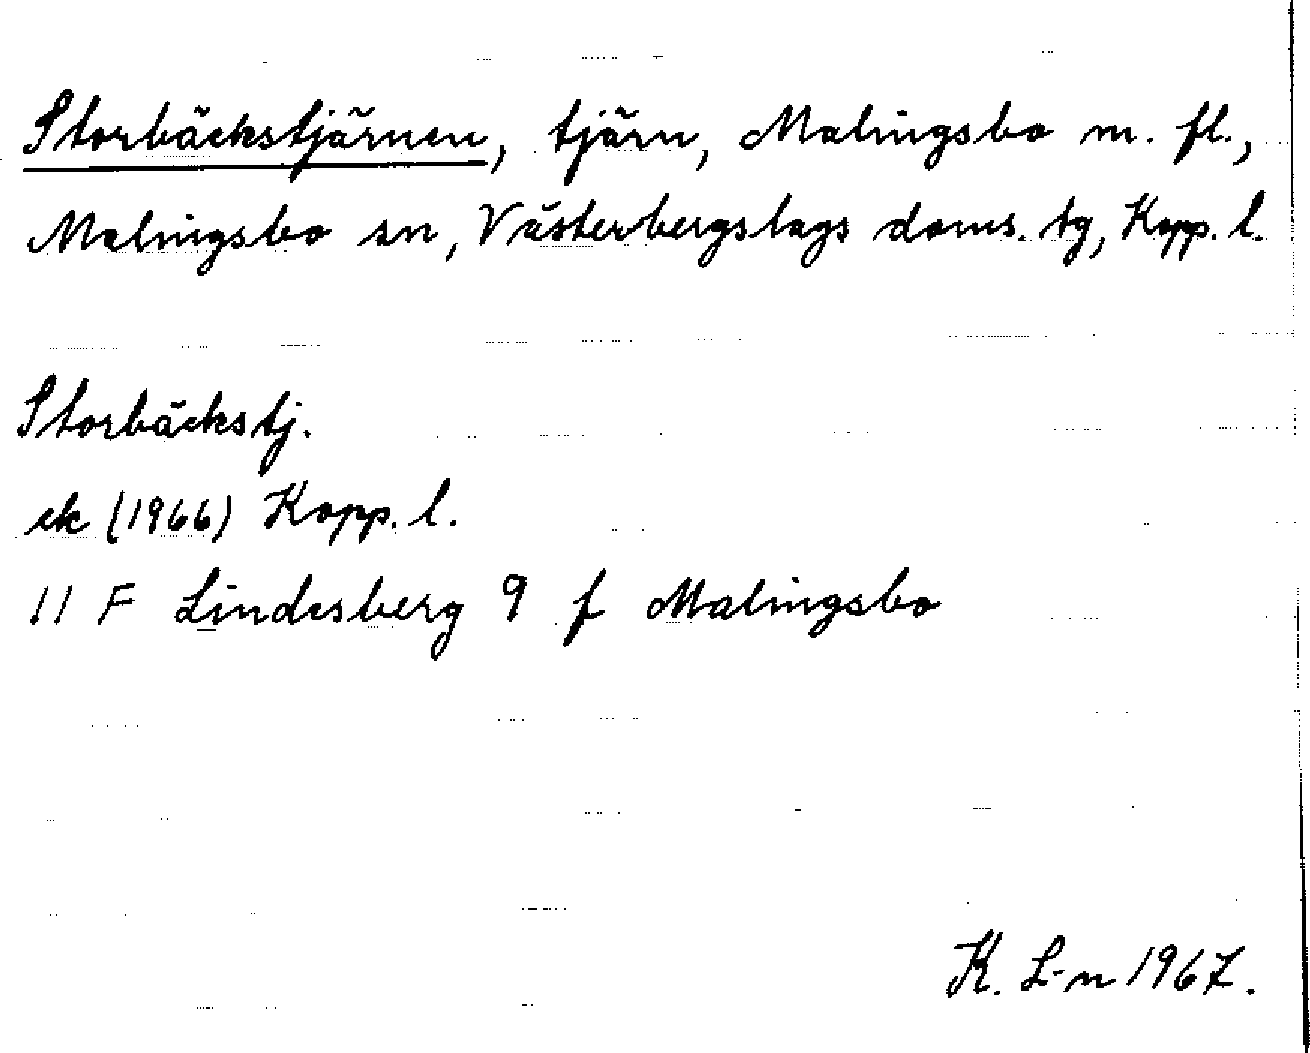 Storbäckstjärnen, tjärn, Malingsbo m. fl.,
Malingsbo sn, Västerbergslags doms. tg, Kopp. l.
Storbäckstj.
ek (1966) Kopp. l.
11 F Lindesberg 9 f Malingsbo
K. L-n 1967.